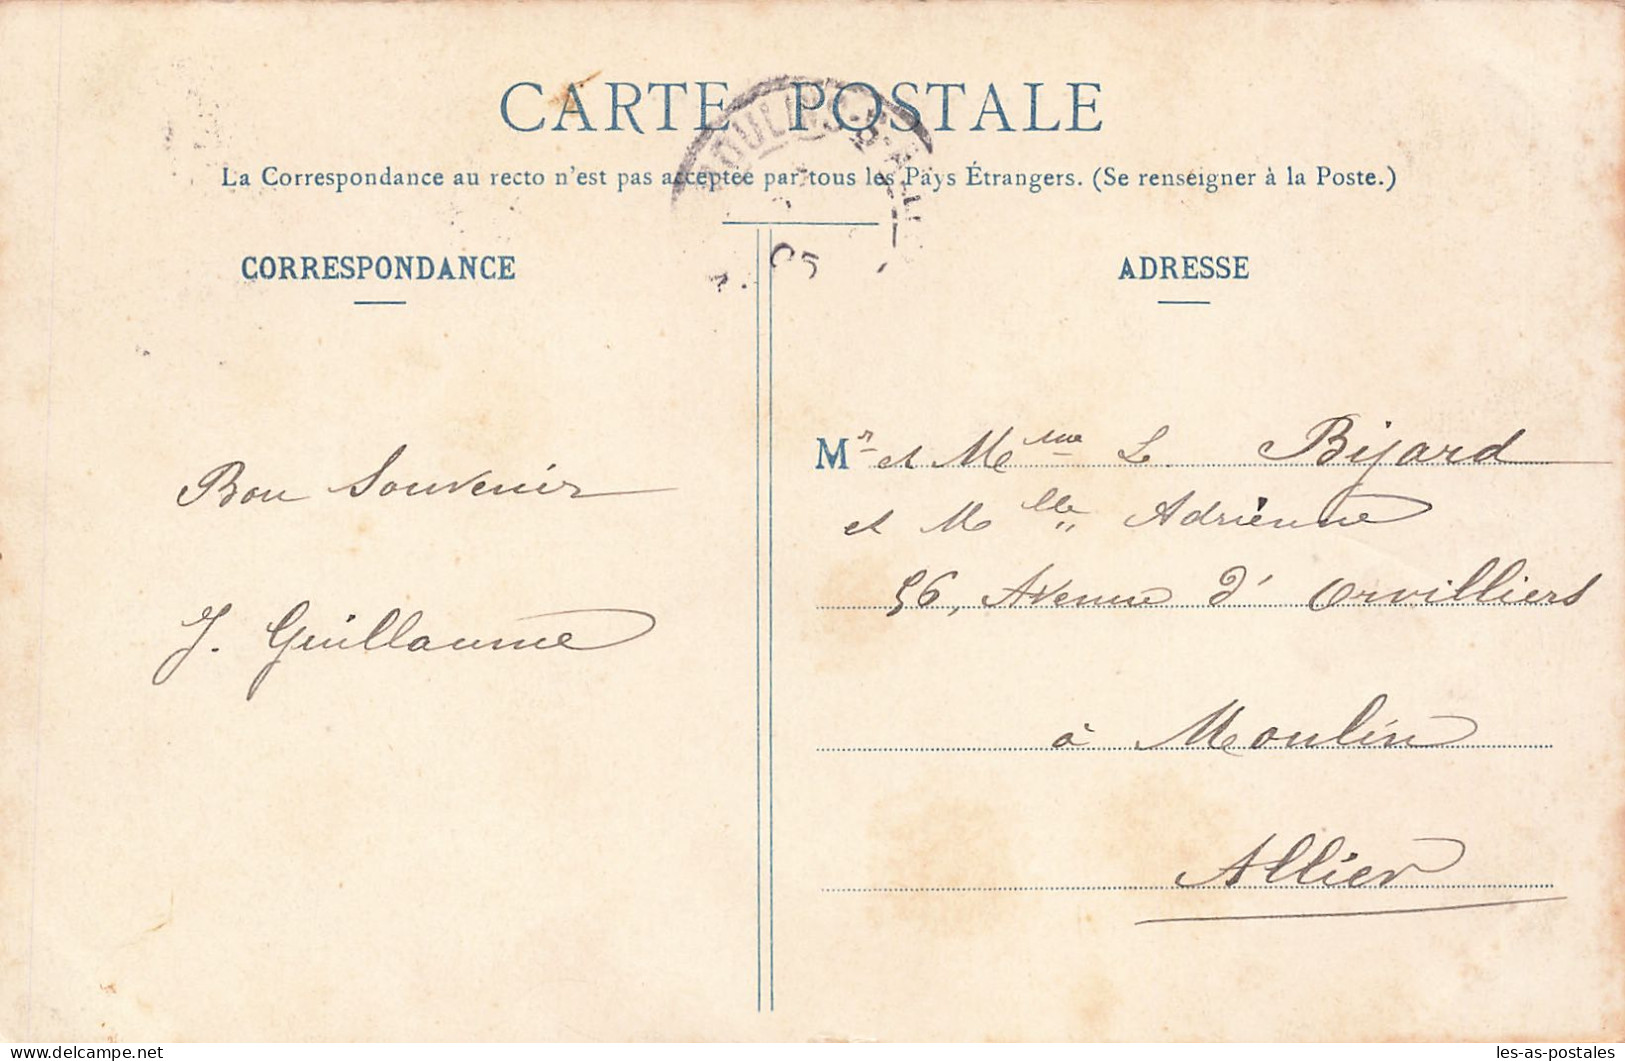 CARTE POSTALE
La Correspondance au recto n'est pas acceptée par tous les Pays Étrangers. (Se renseigner à la Poste.)
CORRESPONDANCE
Bon Souvenir
J. Guillaume
ADRESSE
Mr et Mme L. Bijard
et Mlle Adrienne
56, Avenue d'Orvilliers
à Moulin
Allier
05
les-as-postales